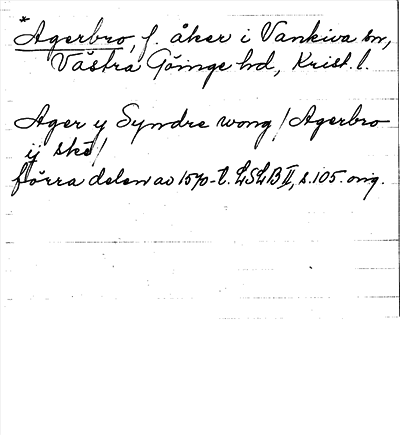 *Agerbro, f. åker i Vankiva sn,
Västra Göinge hd, Krist. l.
Ager y Syndre wong / Agerbro
ij ske /
förra delen av 1570-t. LSLB II, s. 105. orig.